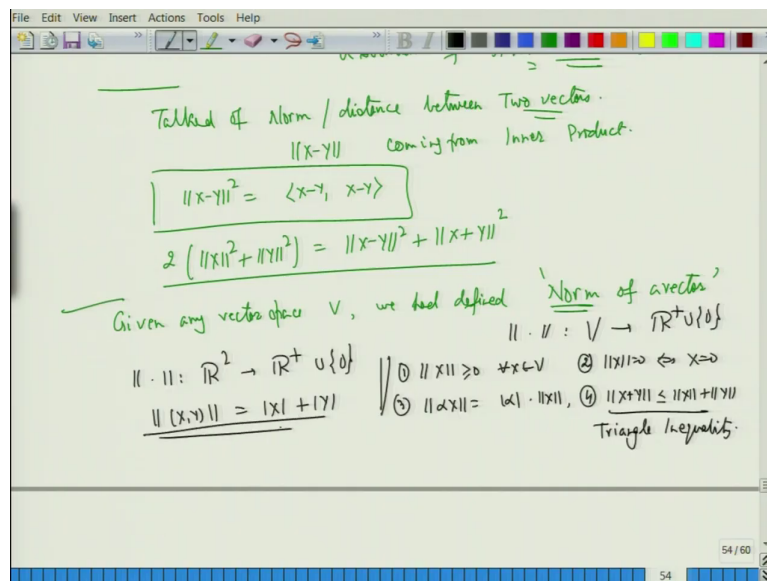 File Edit View Insert Actions Tools Help
Talked of Norm / distance between Two vectors.
||x-y|| coming from Inner Product.
||x-y||² = <x-y, x-y>
2 (||x||² + ||y||²) = ||x-y||² + ||x+y||²
Given any vector space V, we had defined 'Norm of a vector'
|| . || : V → ℝ⁺ ∪ {0}
|| . || : ℝ² → ℝ⁺ ∪ {0}
||(x,y)|| = |x| + |y|
① ||x|| ≥ 0 ∀x∈V ② ||x||=0 ⇔ x=0
③ ||αx|| = |α| . ||x||, ④ ||x+y|| ≤ ||x|| + ||y||
Triangle Inequality.
54 / 60
54